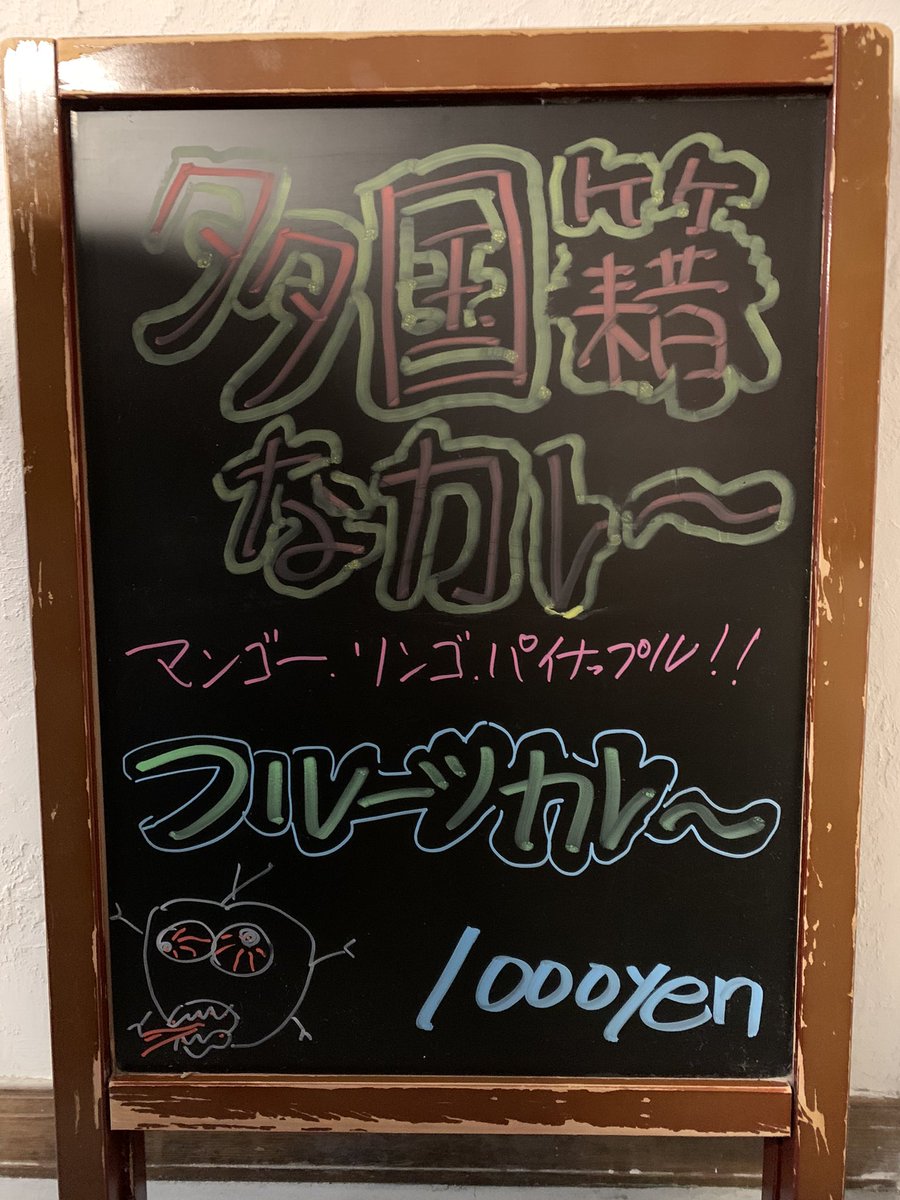 多国籍
なカレ〜
マンゴー.リンゴ.パイナップル!!
フルーツカレ〜
1000yen